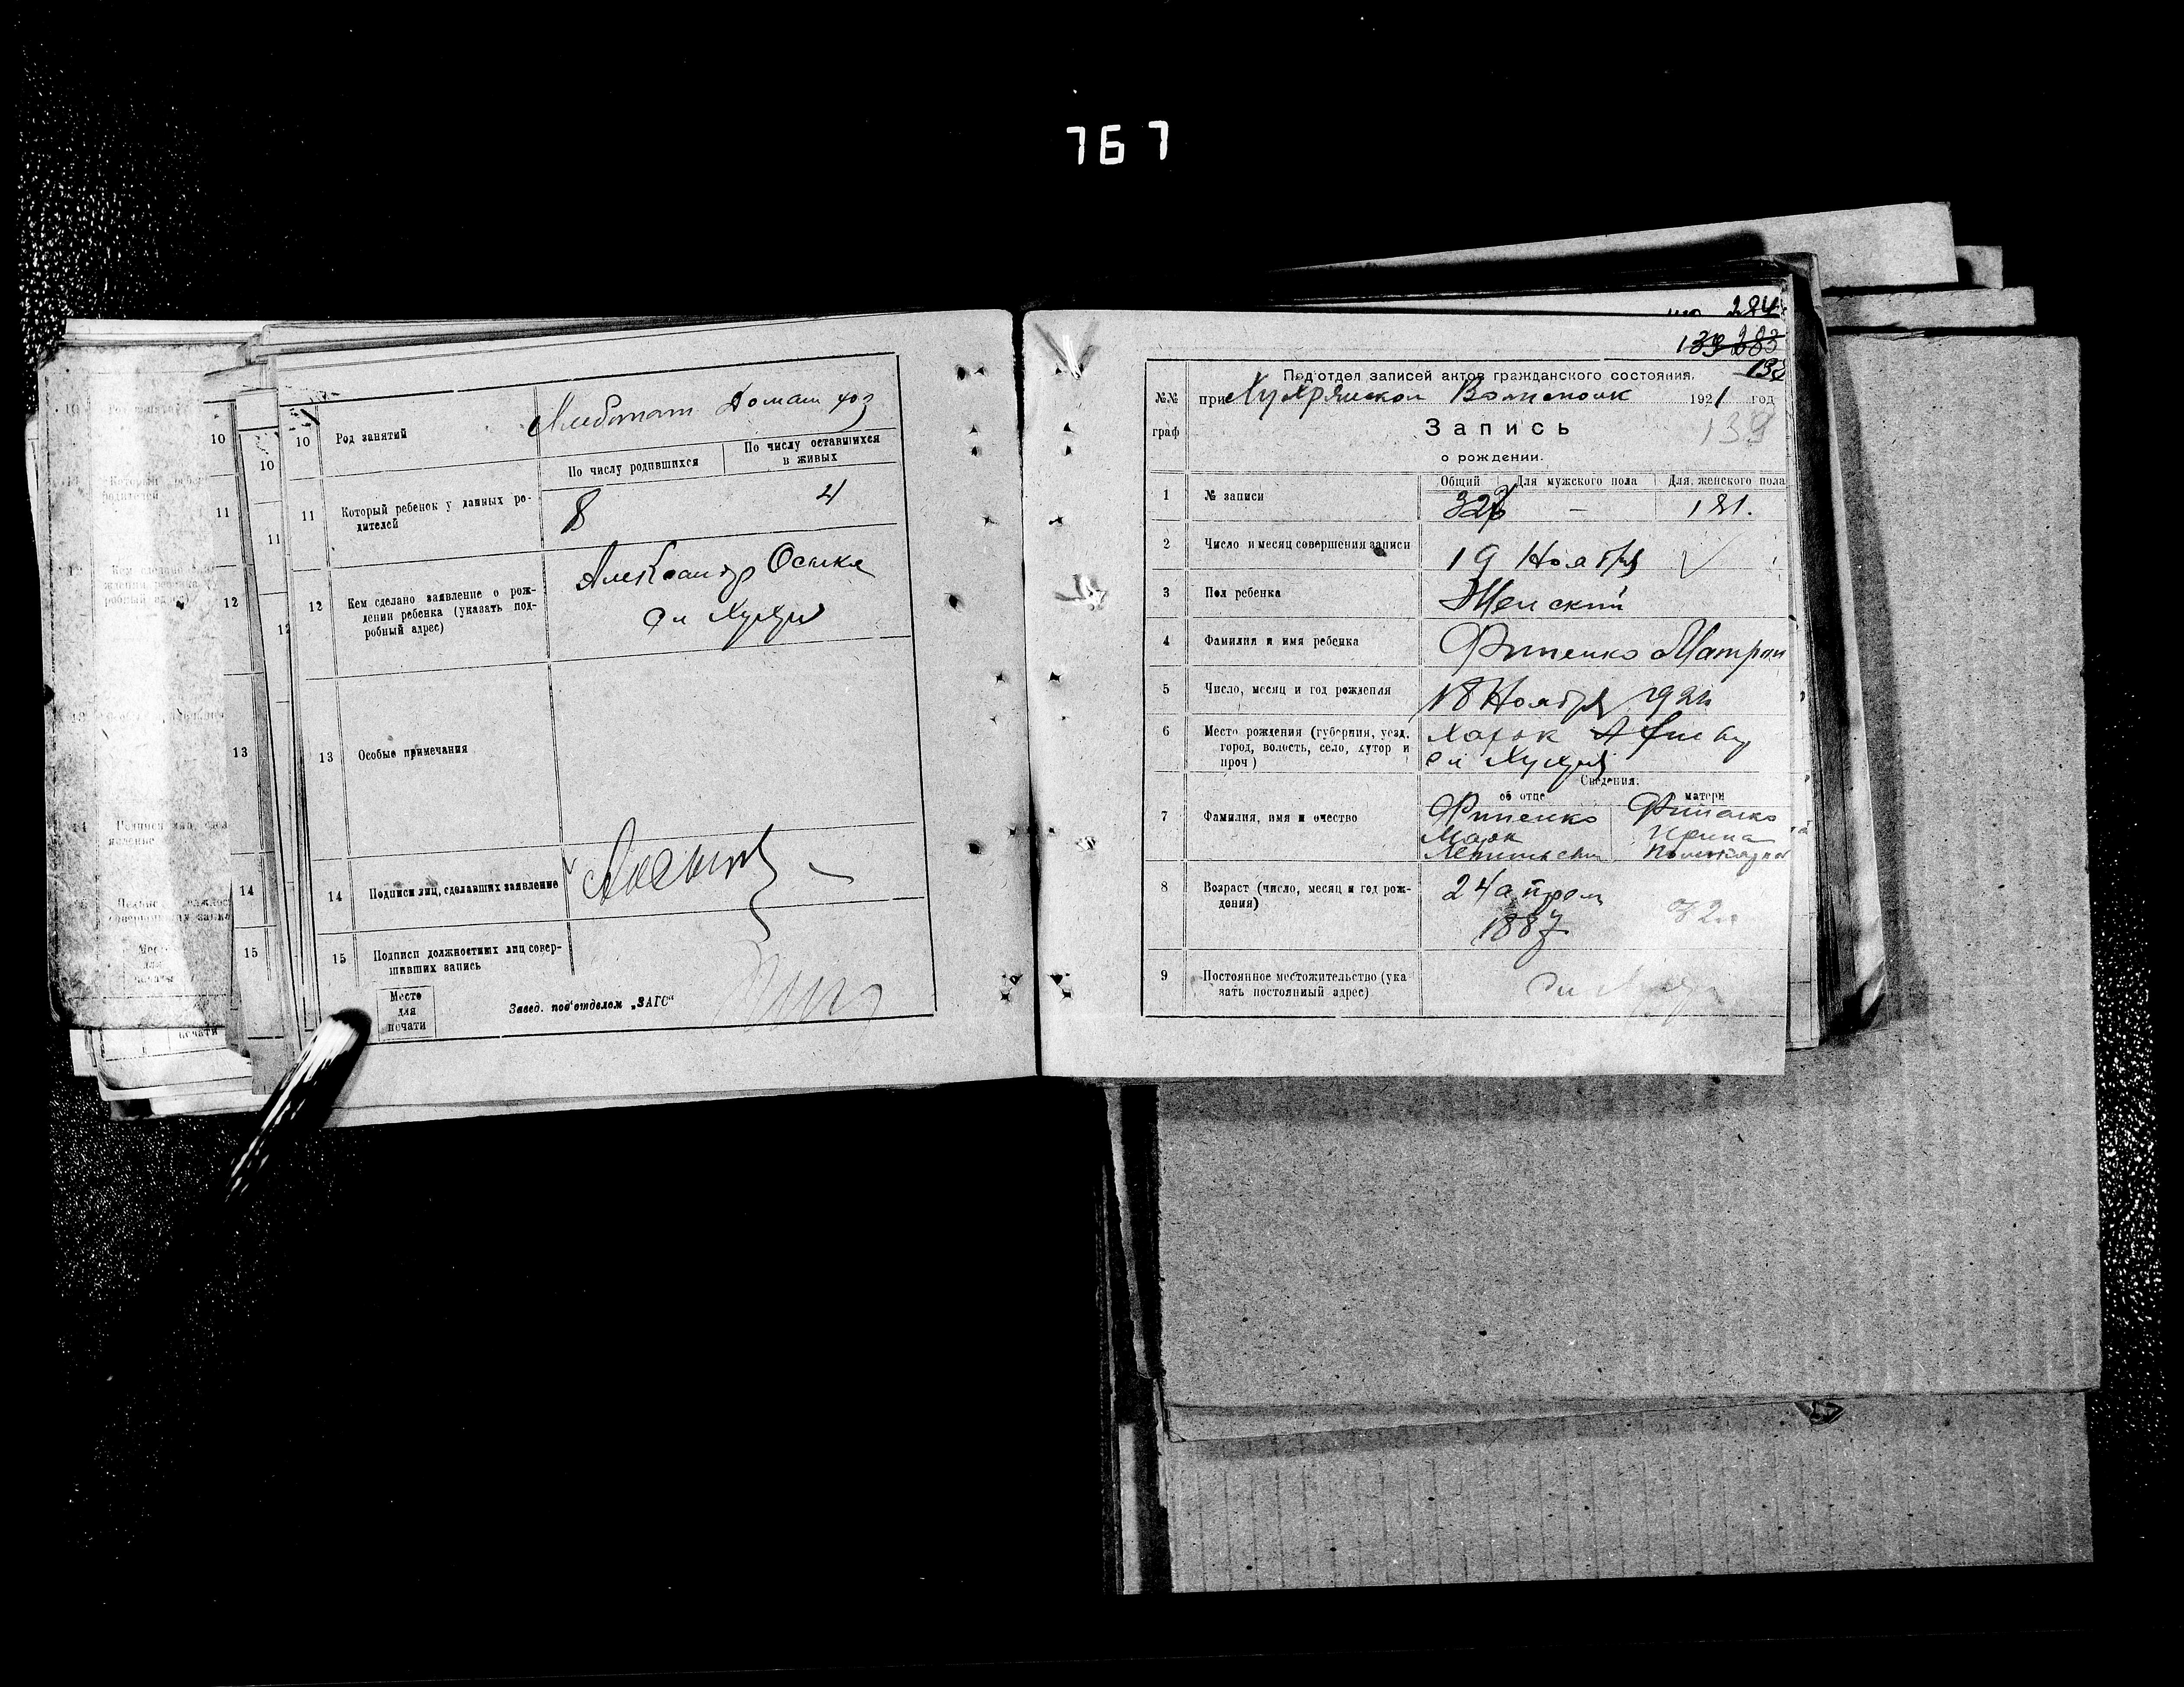 767
10 Род занятий
Хлебопаш Домаш хоз
По числу родившихся
По числу оставшихся
в живых
11 Который ребенок у данных ро-
дителей
8 4
12 Кем сделано заявление о рож-
дении ребенка (указать под-
робный адрес)
Александр Осыка
сл Хухря
13 Особые примечания
14 Подписи лиц, сделавших заявление
15 Подписи должностных лиц совер-
шивших запись
Место
для
печати
Завед. под'отделом „ЗАГС“
10
11
12
13
14
15
10
11
12
284
139 283
138
№№
граф
Под'отдел записей актов гражданского состояния.
при Хухрянском Волисполк 1921 год
Запись
139
о рождении.
Общий Для мужского пола Для женского пола
1 № записи
— 181.
2 Число и месяц совершения записи
19 Ноября
3 Пол ребенка
Женский
4 Фамилия и имя ребенка
Фипенко Матрон
5 Число, месяц и год рождения
18 Ноября 1921
6 Место рождения (губерния, уезд,
город, волость, село, хутор и
проч)
сл Хухря
Сведения:
об отце матери
7 Фамилия, имя и очество
Фипенко Фипенко
Марк Ирина
8 Возраст (число, месяц и год рож-
дения)
24 апрел
1887
32
9 Постоянное местожительство (ука
зать постоянный адрес)
сл Хухр